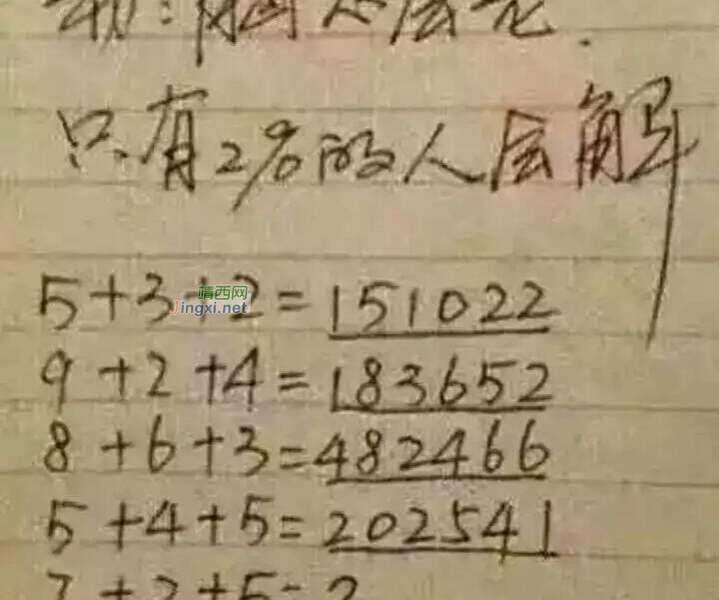 只有2%的人会解
5+3+2=151022
靖西网
jingxi.net
9+2+4=183652
8+6+3=482466
5+4+5=202541